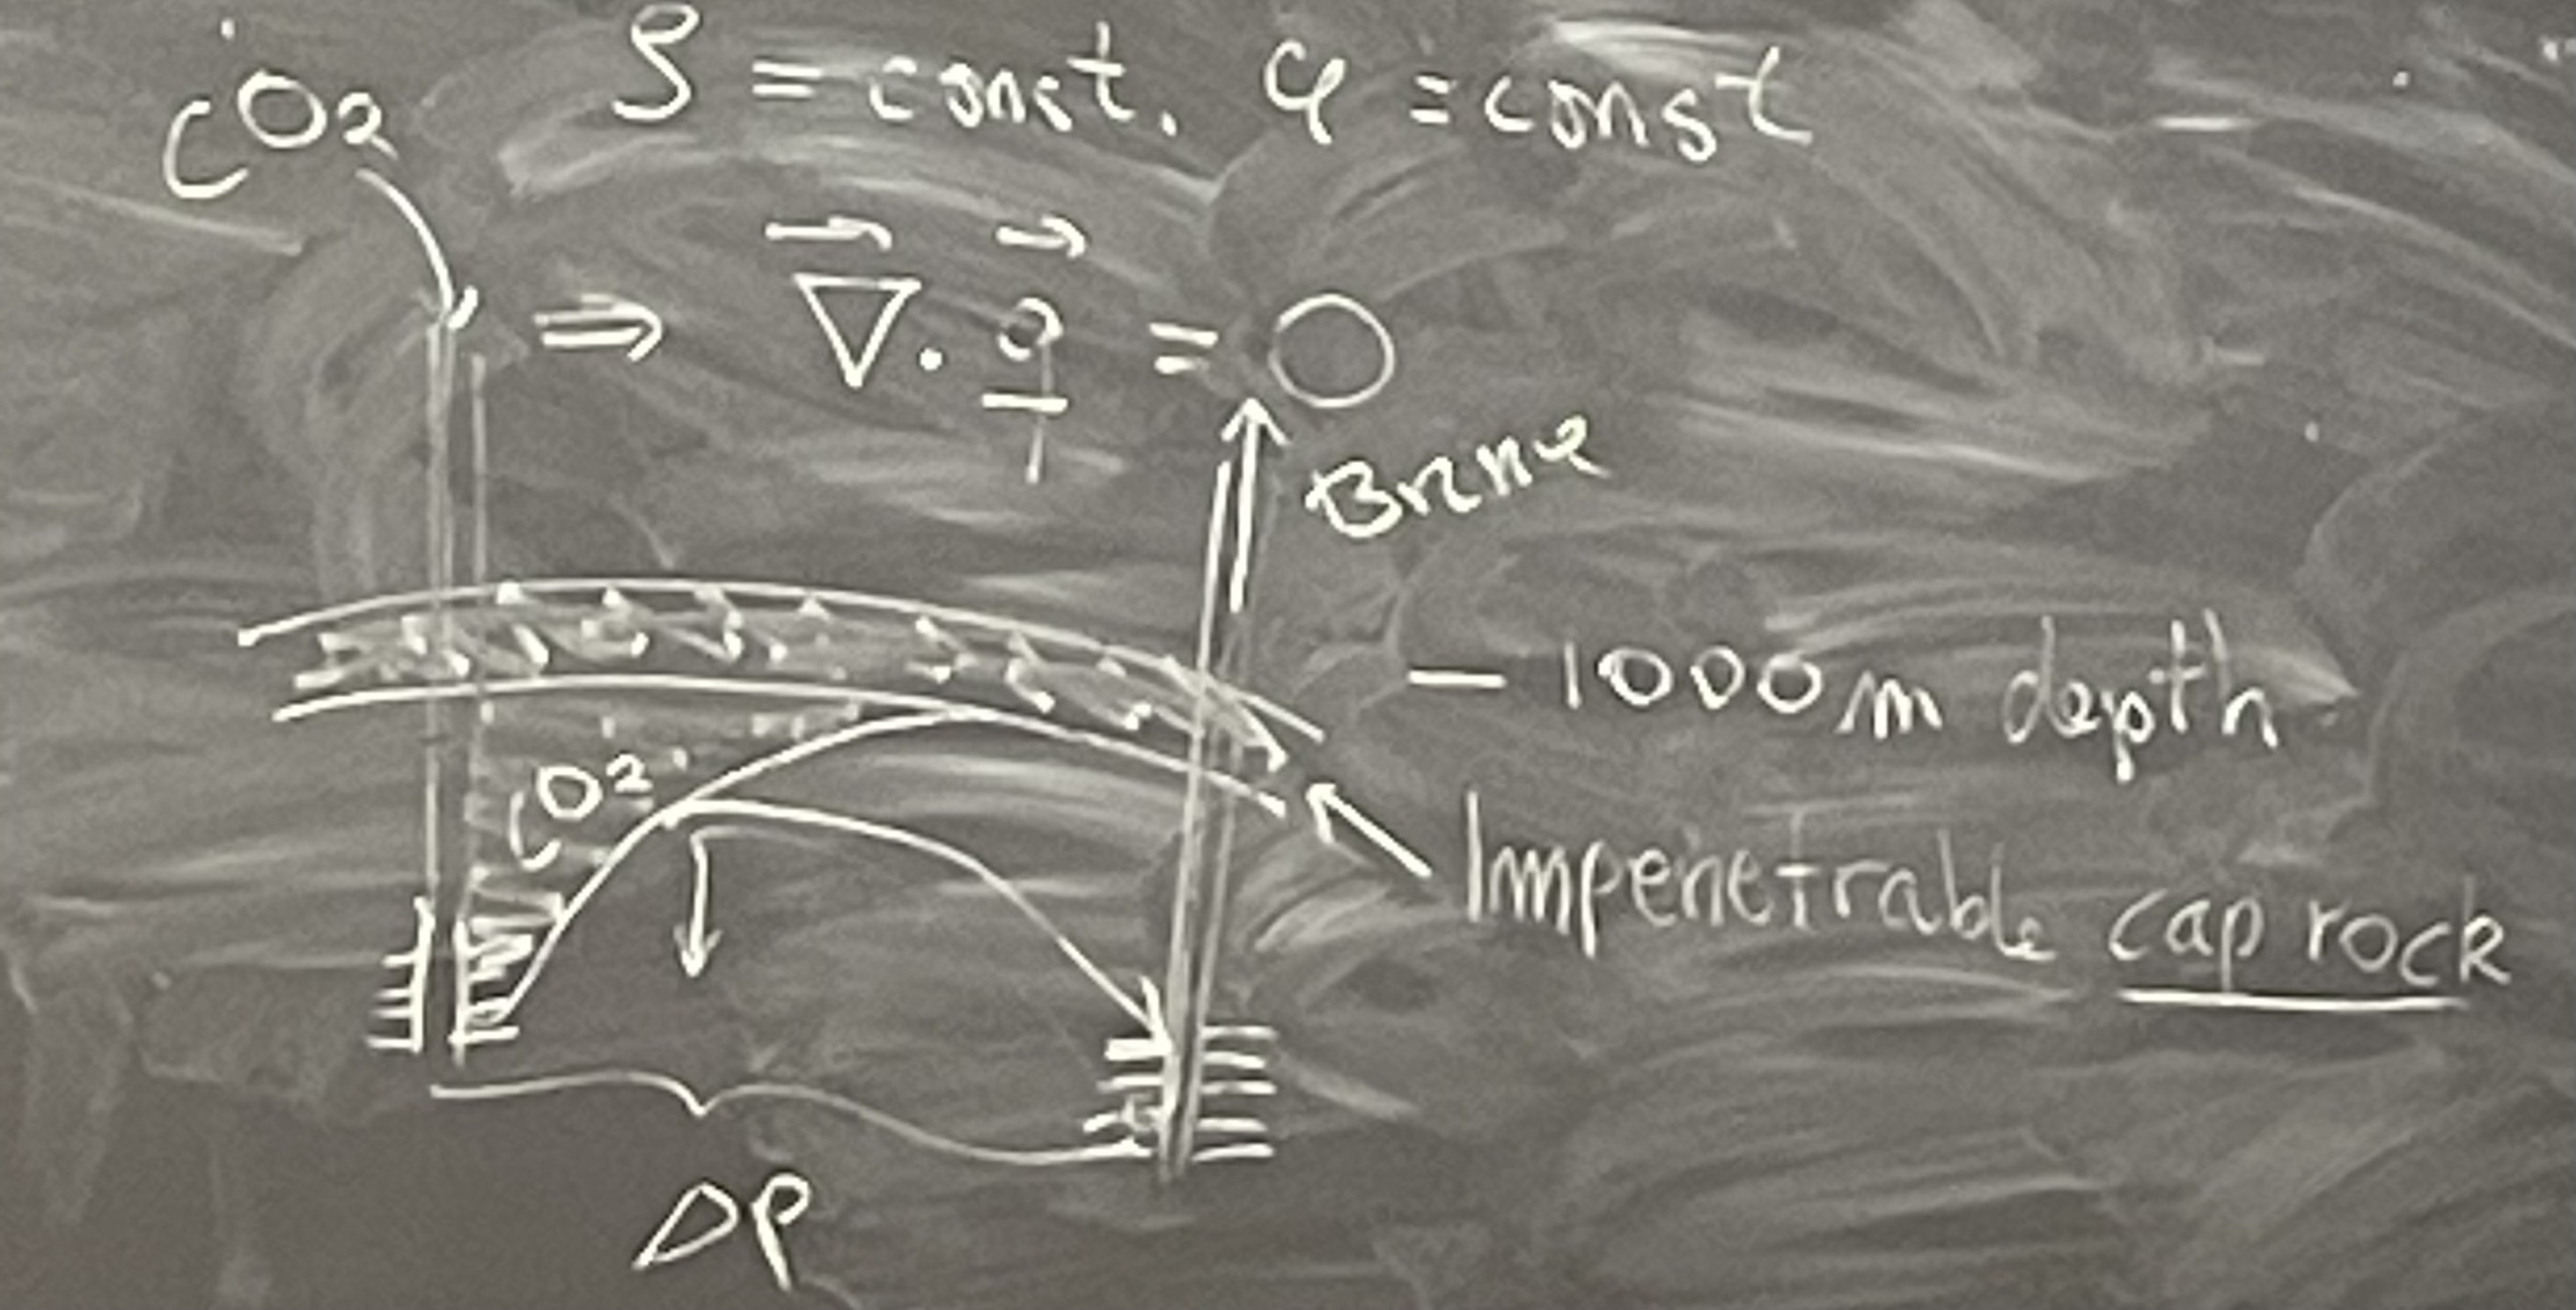 CO₂
ρ = const. φ = const
⇒ ∇⃗ · q⃗ = 0
Brine
— 1000 m depth
CO₂
Impenetrable cap rock
ΔP